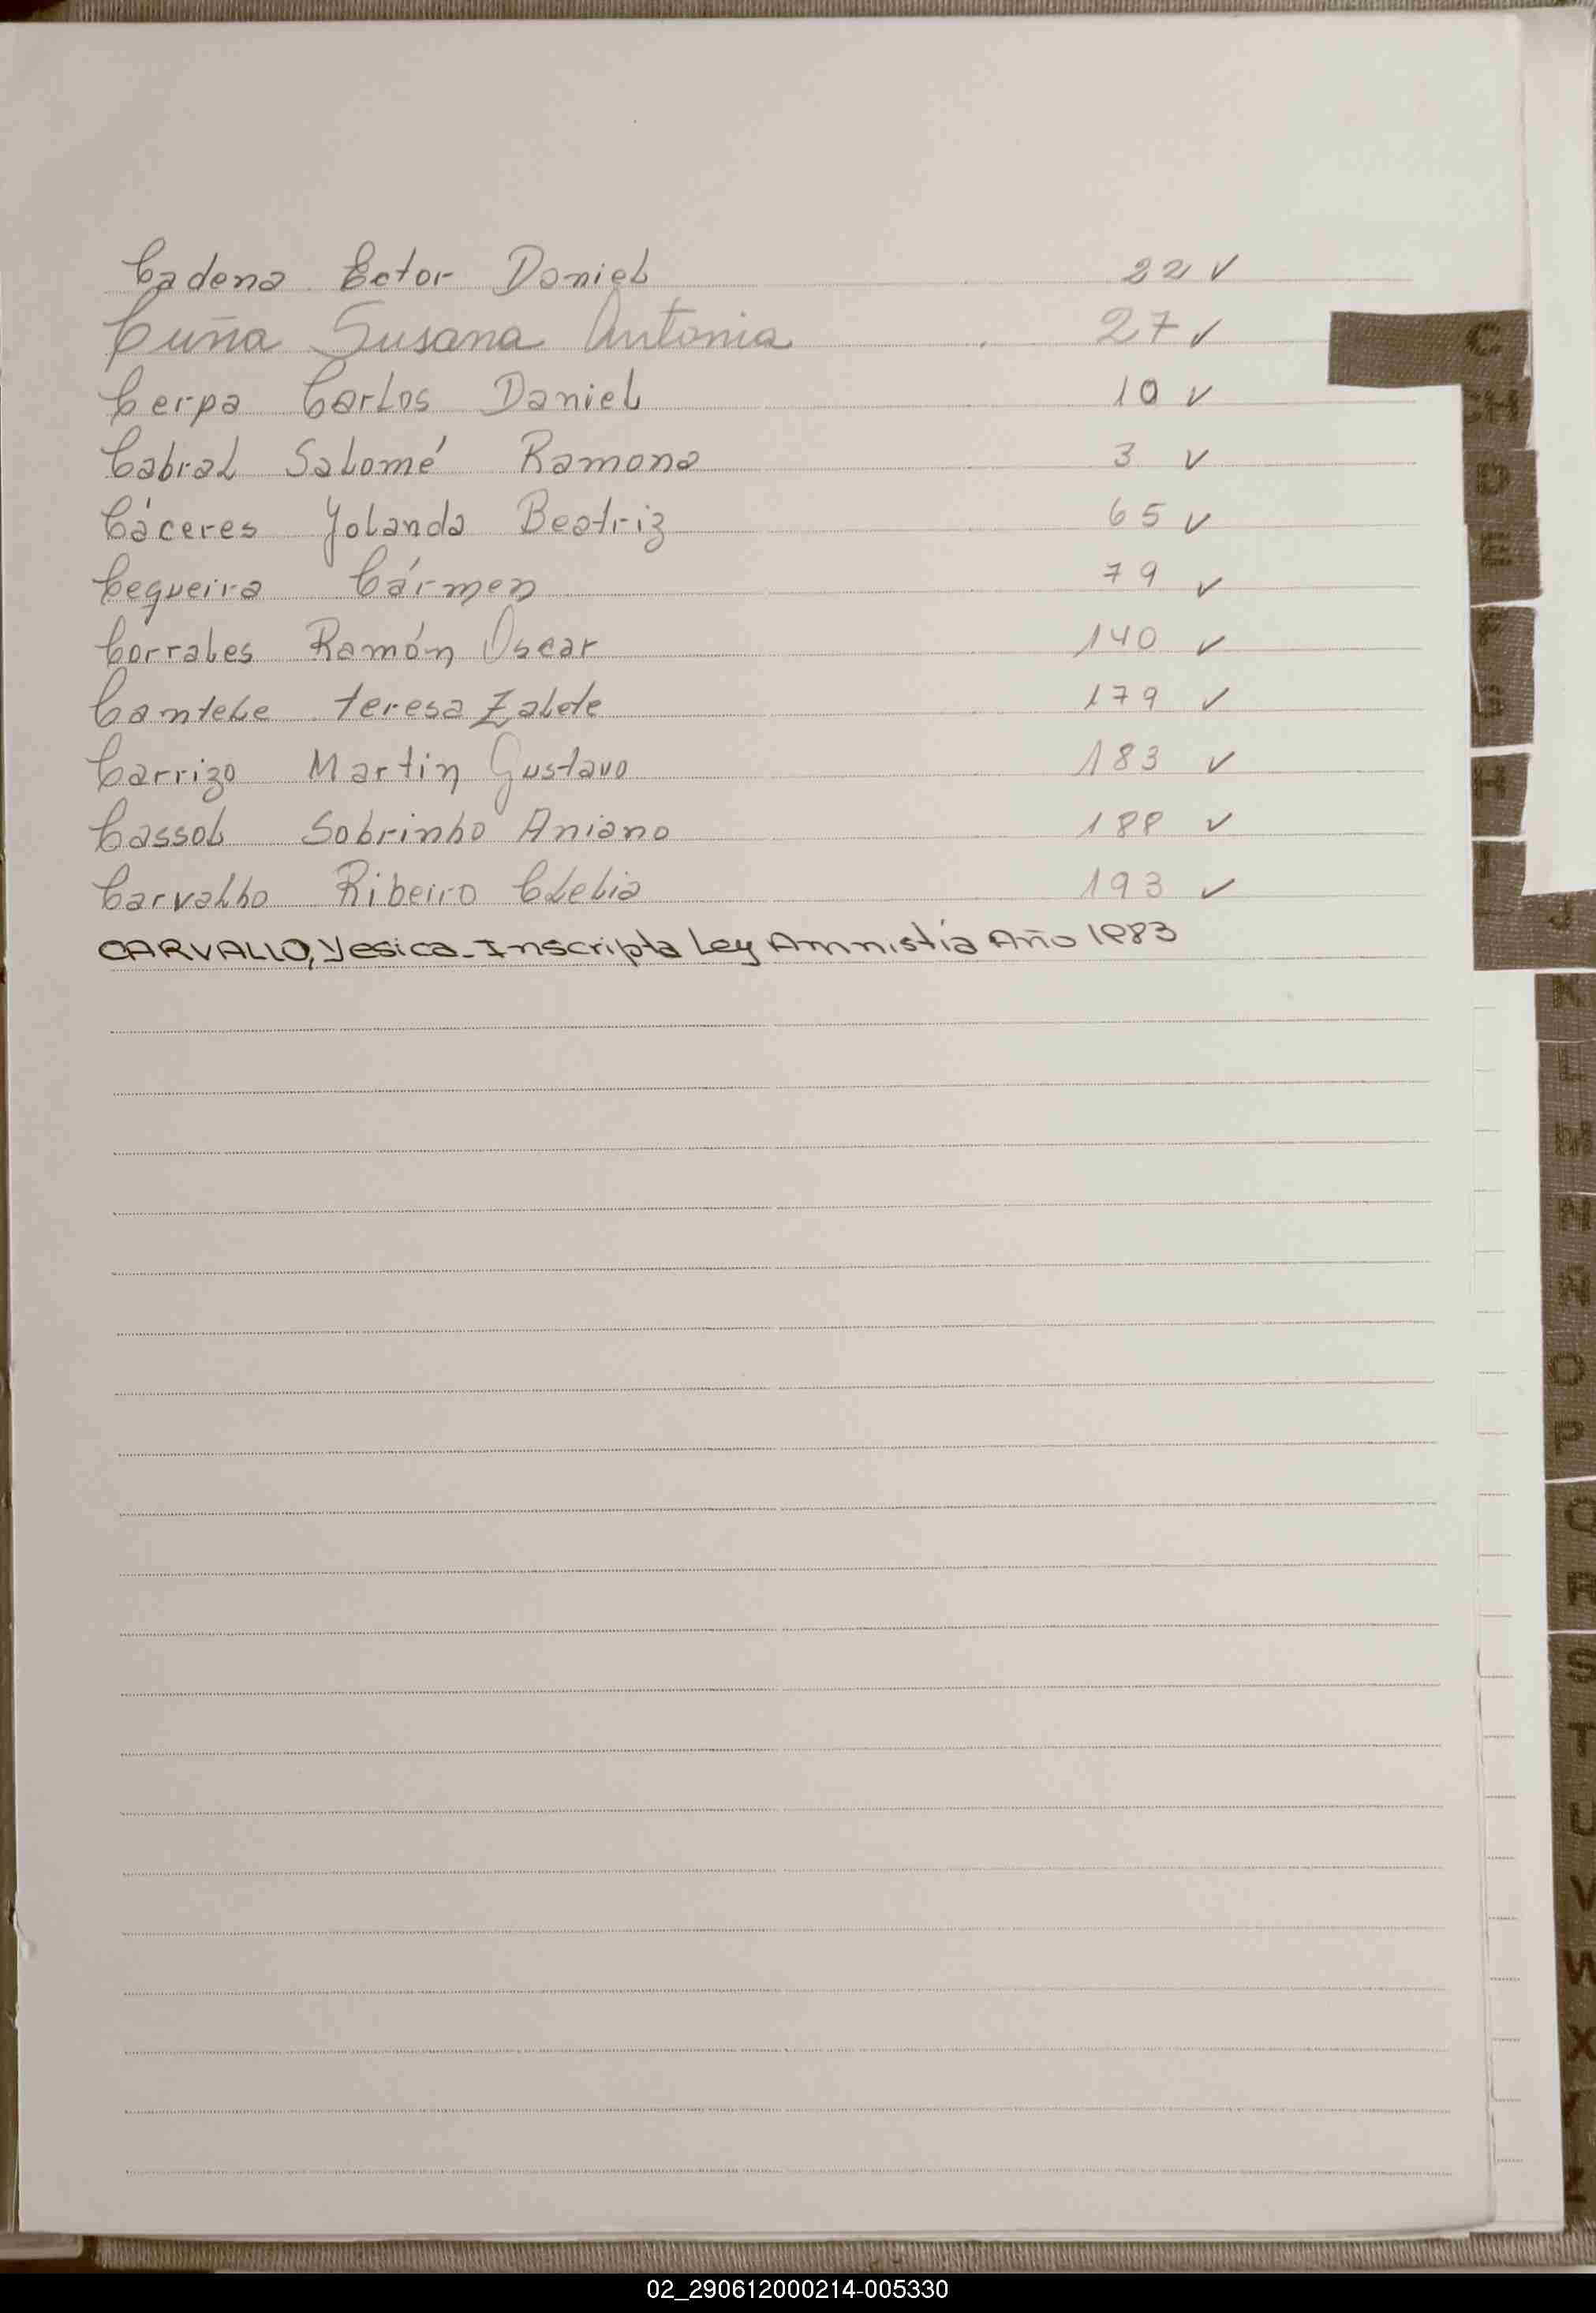 Cadena Ector Daniel 22 ✓
Cuña Susana Antonia 27 ✓
Cerpa Carlos Daniel 10 ✓
Cabral Salomé Ramona 3 ✓
Cáceres Yolanda Beatriz 65 ✓
Cequeira Cármen 79 ✓
Corrales Ramón Oscar 140 ✓
Cantele teresa Zalete 179 ✓
Carrizo Martin Gustavo 183 ✓
Cassol Sobrinho Aniano 188 ✓
Carvalho Ribeiro Clelia 193 ✓
CARVALLO, Yesica - Inscripta Ley Amnistía Año 1983
C
CH
D
E
F
G
H
I
J
K
L
M
N
Ñ
O
P
Q
R
S
T
U
V
W
X
Y
Z
02_290612000214-005330